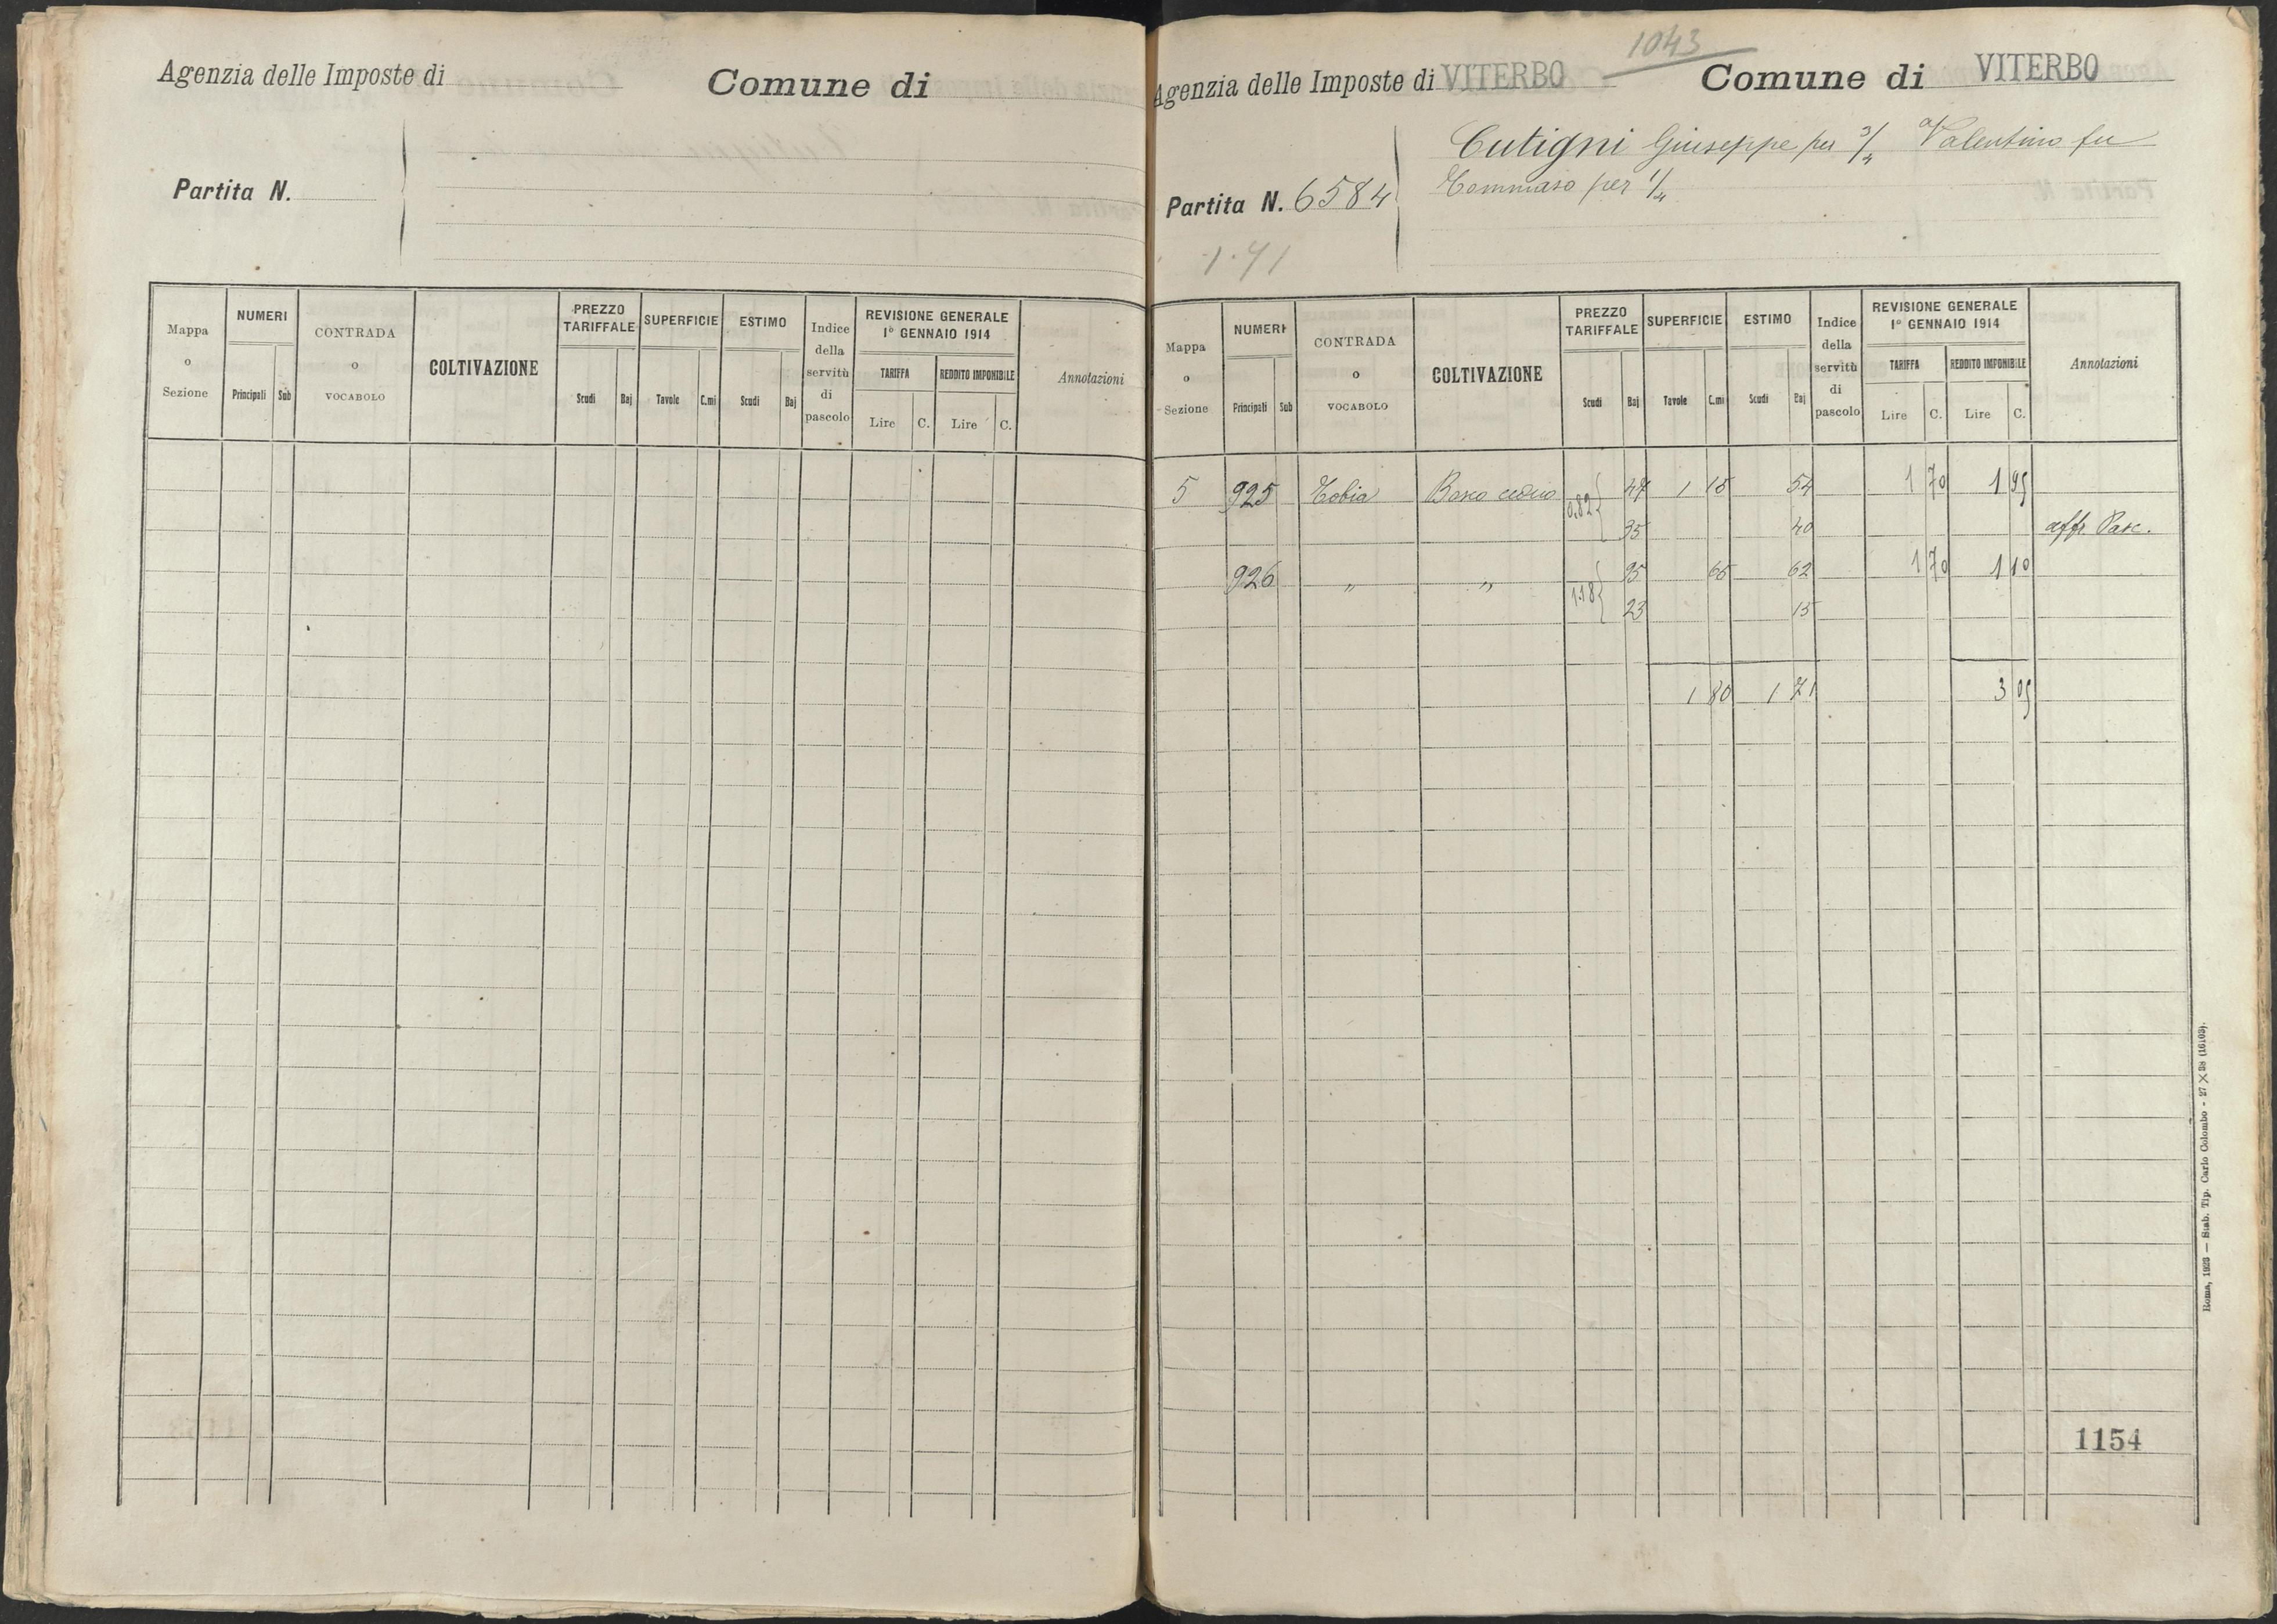 Agenzia delle Imposte di
Comune di
Partita N.
Mappa o Sezione
NUMERI
Principali
Sub
CONTRADA o VOCABOLO
COLTIVAZIONE
PREZZO TARIFFALE
Scudi
Baj
SUPERFICIE
Tavole
C.mi
ESTIMO
Scudi
Baj
Indice della servitù di pascolo
REVISIONE GENERALE
1º GENNAIO 1914
TARIFFA
Lire
C.
REDDITO IMPONIBILE
Lire
C.
Annotazioni
1043
Agenzia delle Imposte di VITERBO
Comune di VITERBO
Cutigni Giuseppe per 3/4 Valentino fu
Tommaso per 1/4
Partita N. 6584
1.71
Mappa o Sezione
NUMERI
Principali
Sub
CONTRADA o VOCABOLO
COLTIVAZIONE
PREZZO TARIFFALE
Scudi
Baj
SUPERFICIE
Tavole
C.mi
ESTIMO
Scudi
Baj
Indice della servitù di pascolo
REVISIONE GENERALE
1º GENNAIO 1914
TARIFFA
Lire
C.
REDDITO IMPONIBILE
Lire
C.
Annotazioni
5 925 Tobia Bosco ceduo 0.82 { 47 1 15 54 1 70 1 95
35 40 affr. Pasc.
926 " " 1.18 { 95 65 62 1 70 1 10
23 15
1 80 1 71 3 05
1154
Roma, 1923 — Stab. Tip. Carlo Colombo - 27 X 38 (16103).